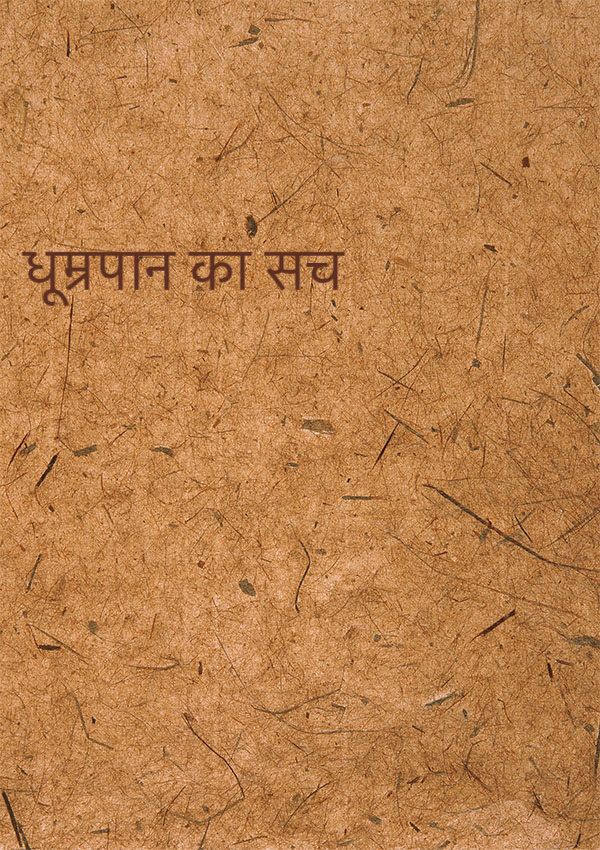 धूम्रपान का सच